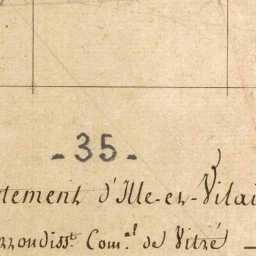 - 35 -
tement d'Ille-et-Vilai
rrondisst. Comal. de Vitré